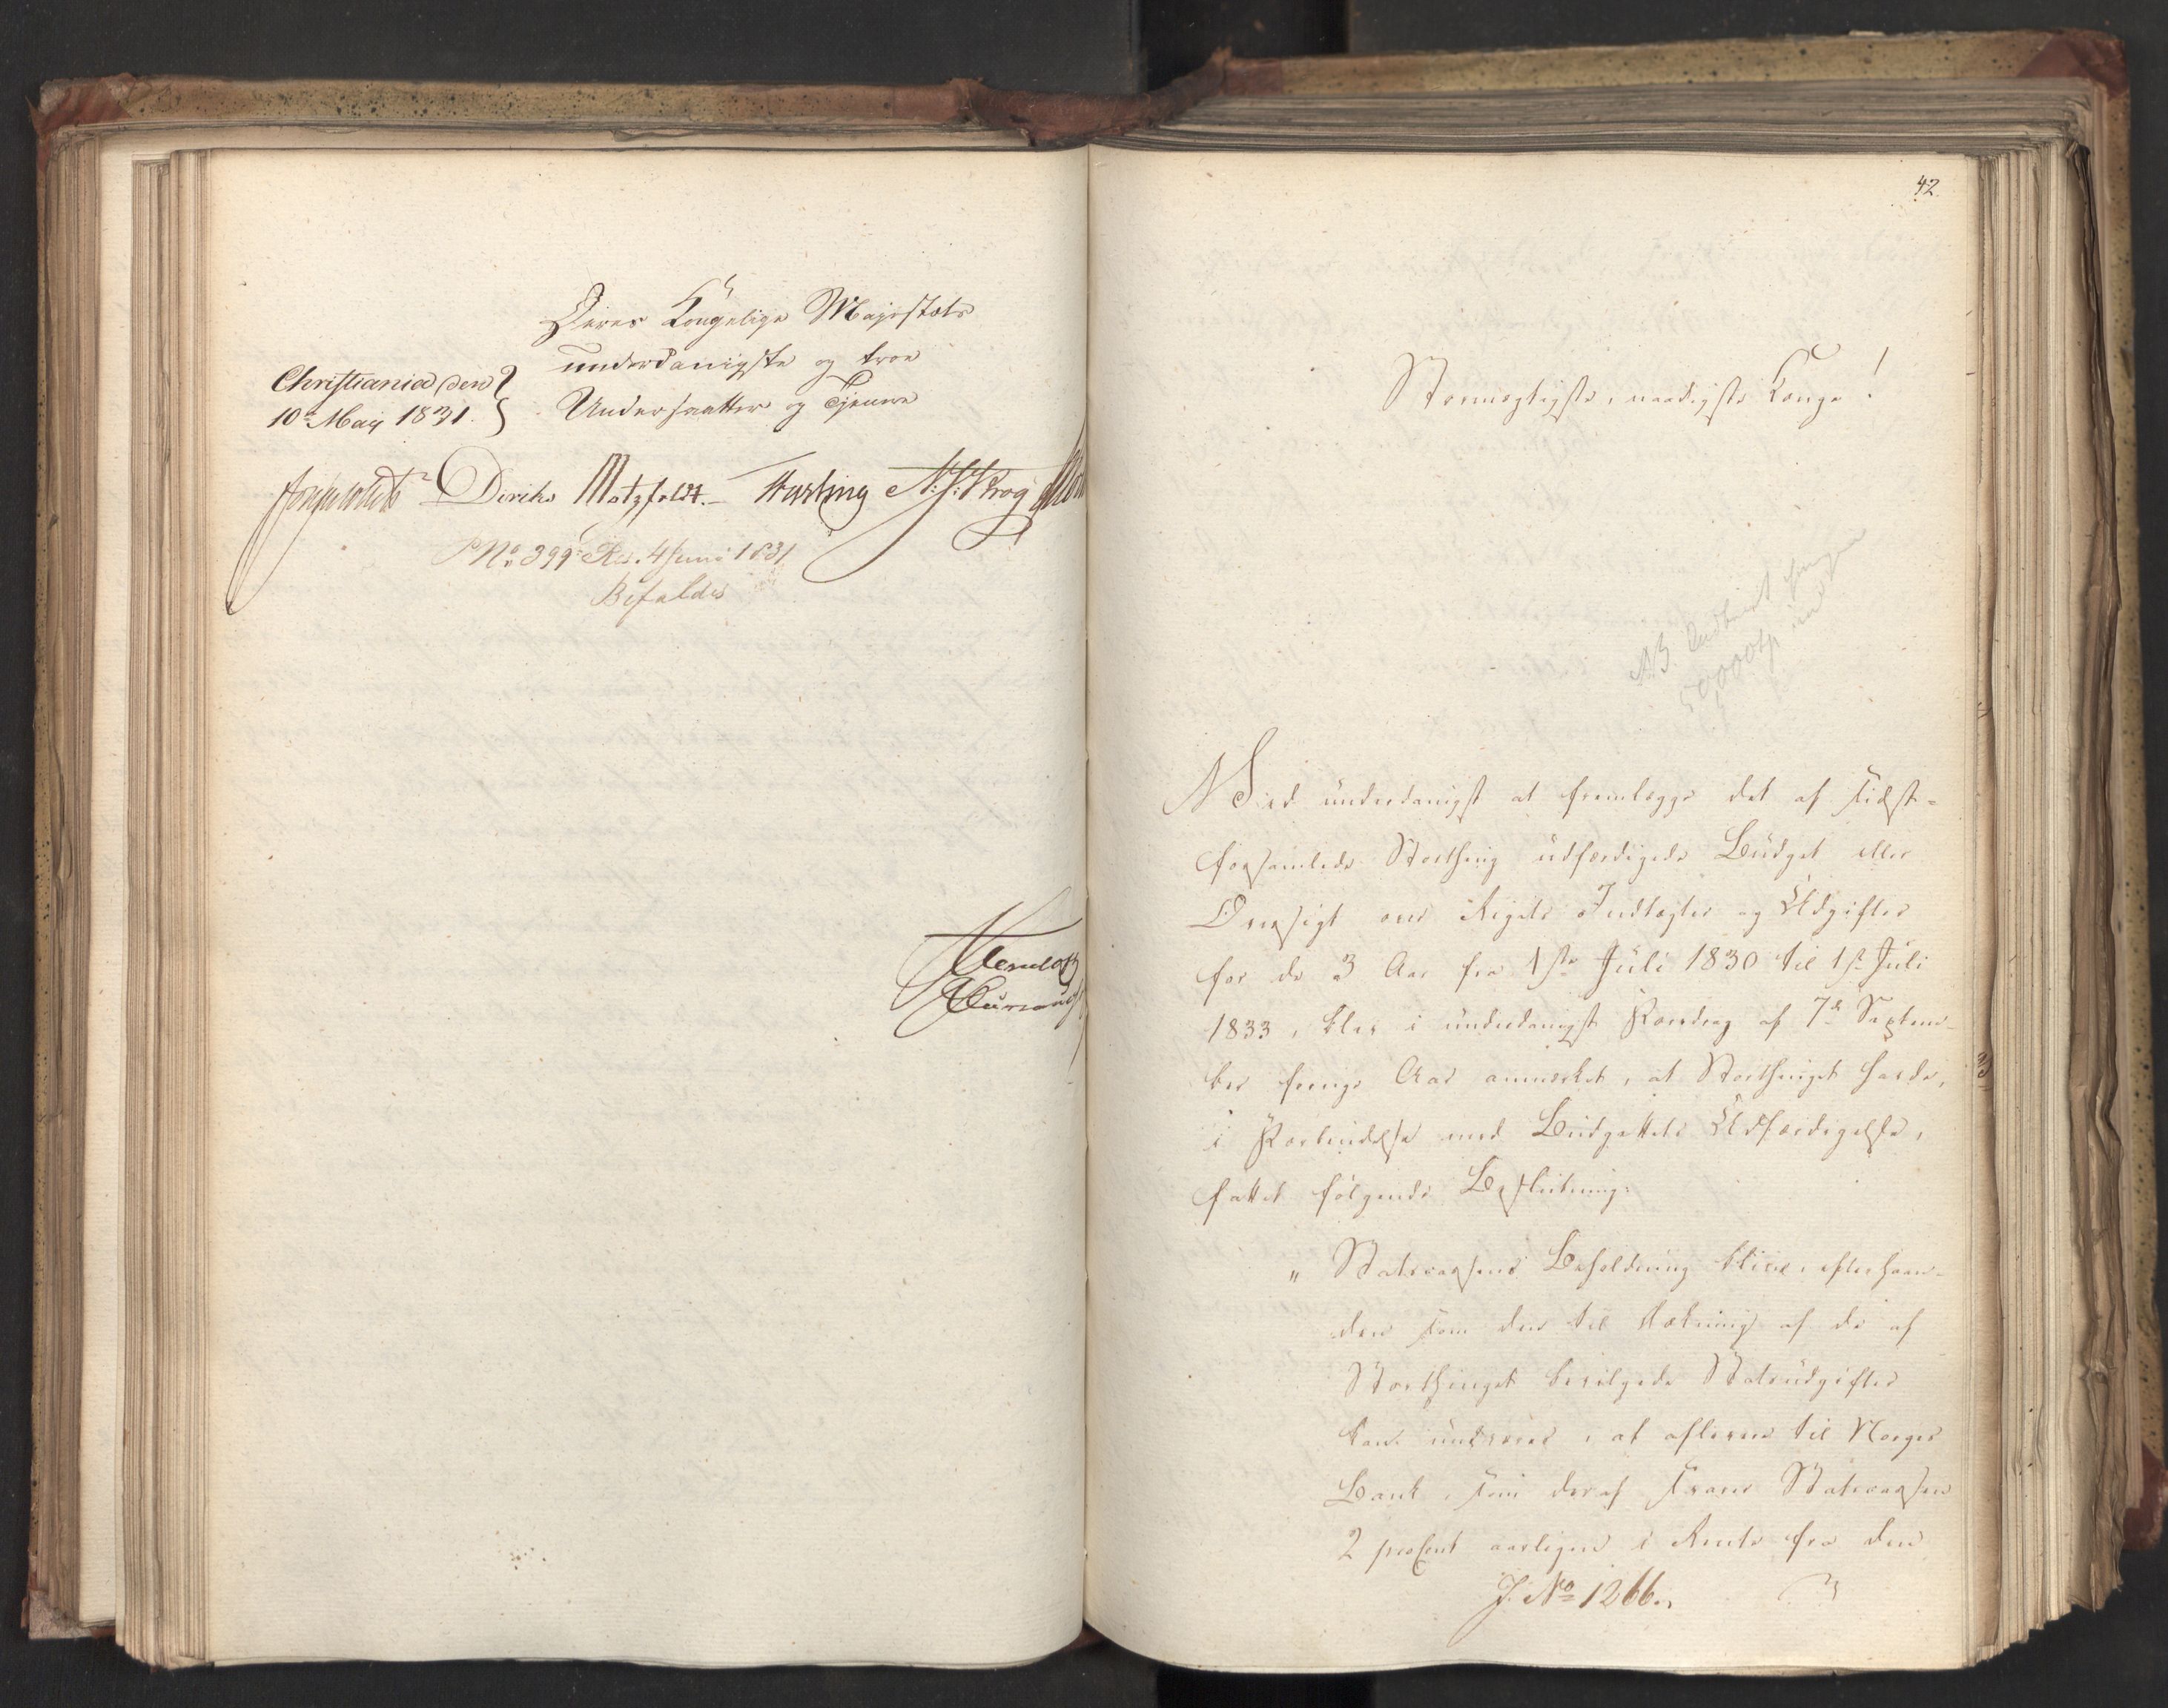 Deres Kongelige Majestæts
underdanigste og troe
Undersaatter og Tjenere
Christiania den
10de May 1831.
Diriks Motzfeldt. Fasting
No. 399 Res. 4 Juni 1831
Bifaldes
42.
Stormægtigste, naadigste Konge!
NB.
50,000
Ved underdanigst at fremlægge det af sidst-
forsamlede Storthing udfærdigede Budget eller
Oversigt over Rigets Indtægter og Udgifter
for de 3 Aar fra 1ste Juli 1830 til 1ste Juli
1833, blev i underdanigst Foredrag af 7de Septem-
ber forrige Aar anmærket, at Storthinget havde,
i Forbindelse med Budgettets Udfærdigelse,
fattet følgende Beslutning:
„Statscassens Beholdning bliver, efterhaan-
den som den til Dækning af de af
Storthinget bevilgede Statsudgifter
kan undværes, at aflevere til Norges
Bank, som deraf svarer Statscassen
2 procent aarligen i Rente fra den
J. No 1266.